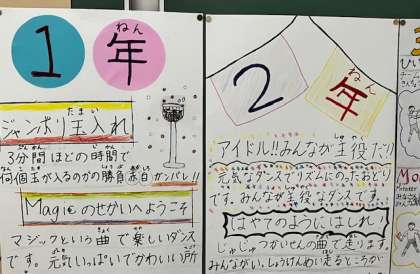 1年
ねん
ジャンボリ玉入れ
たまい
3分間ほどの時間で
何個玉が入るのかの勝負赤白ガンバレ!!
Magicのせかいへようこそ
マジックという曲で楽しいダンス
です。元気いっぱいでかわいい所
2年
ねん
アイドル!!みんなが主役だ!!
元気なダンスでリズムにのっておどり
です。みんなが主役なダンスです。
はやてのようにはしれ!
じゅじゅつかいせんの曲で走ります。
みんながいっしょうけんめい走るところが